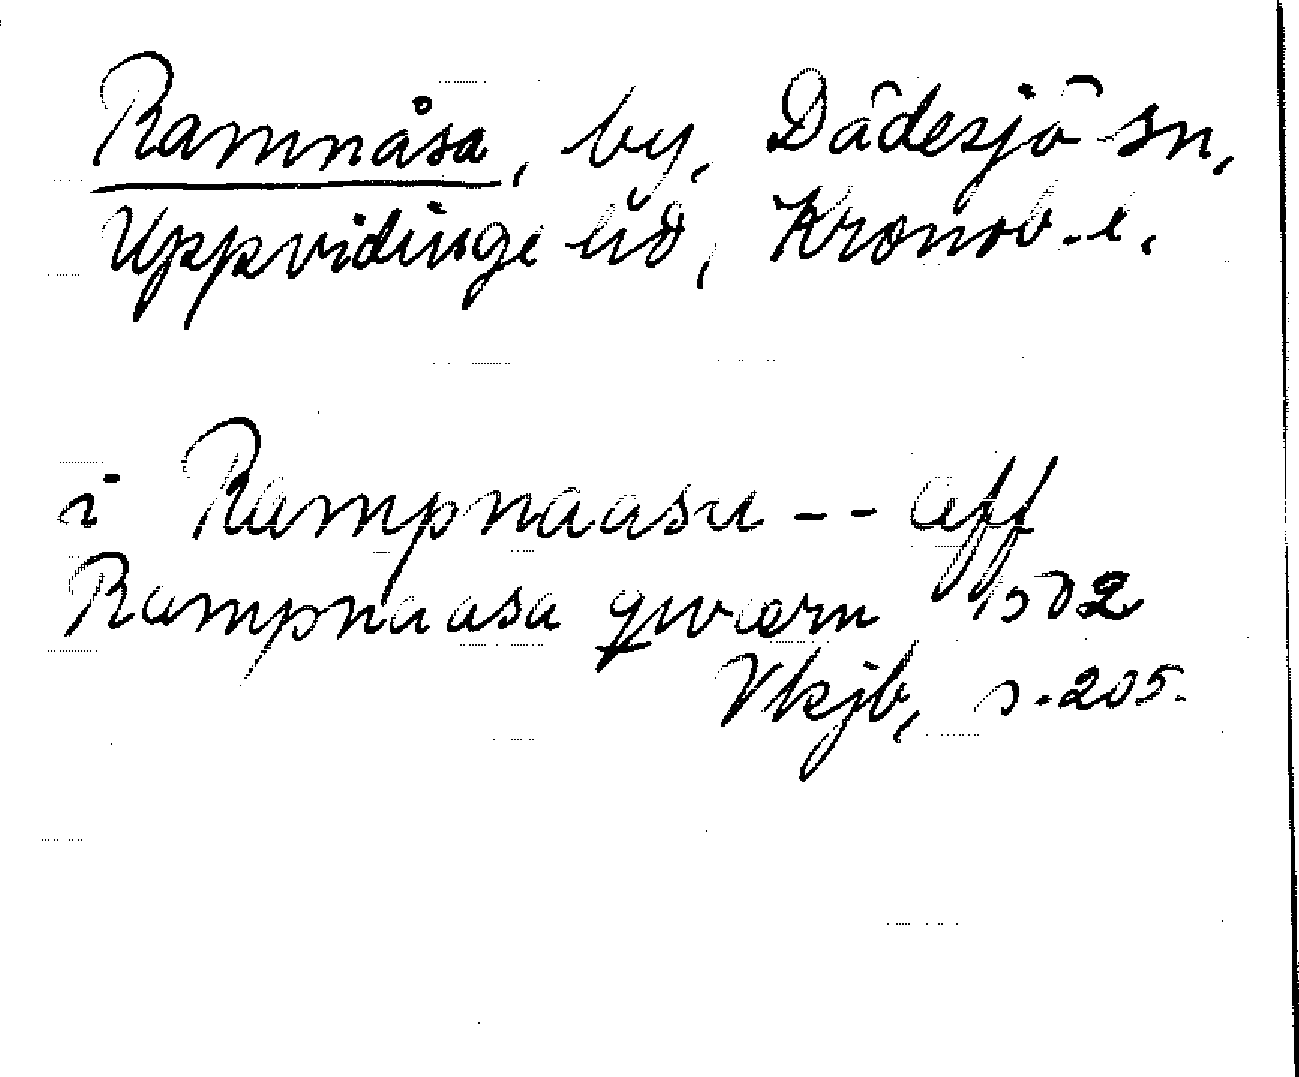 Ramnåsa, by, Dädesjö sn,
Uppvidinge hd, Kronob. l.
i Rampnaasa -- aff
Rampnaasa qwærn 1502
Vkjb, s. 205.